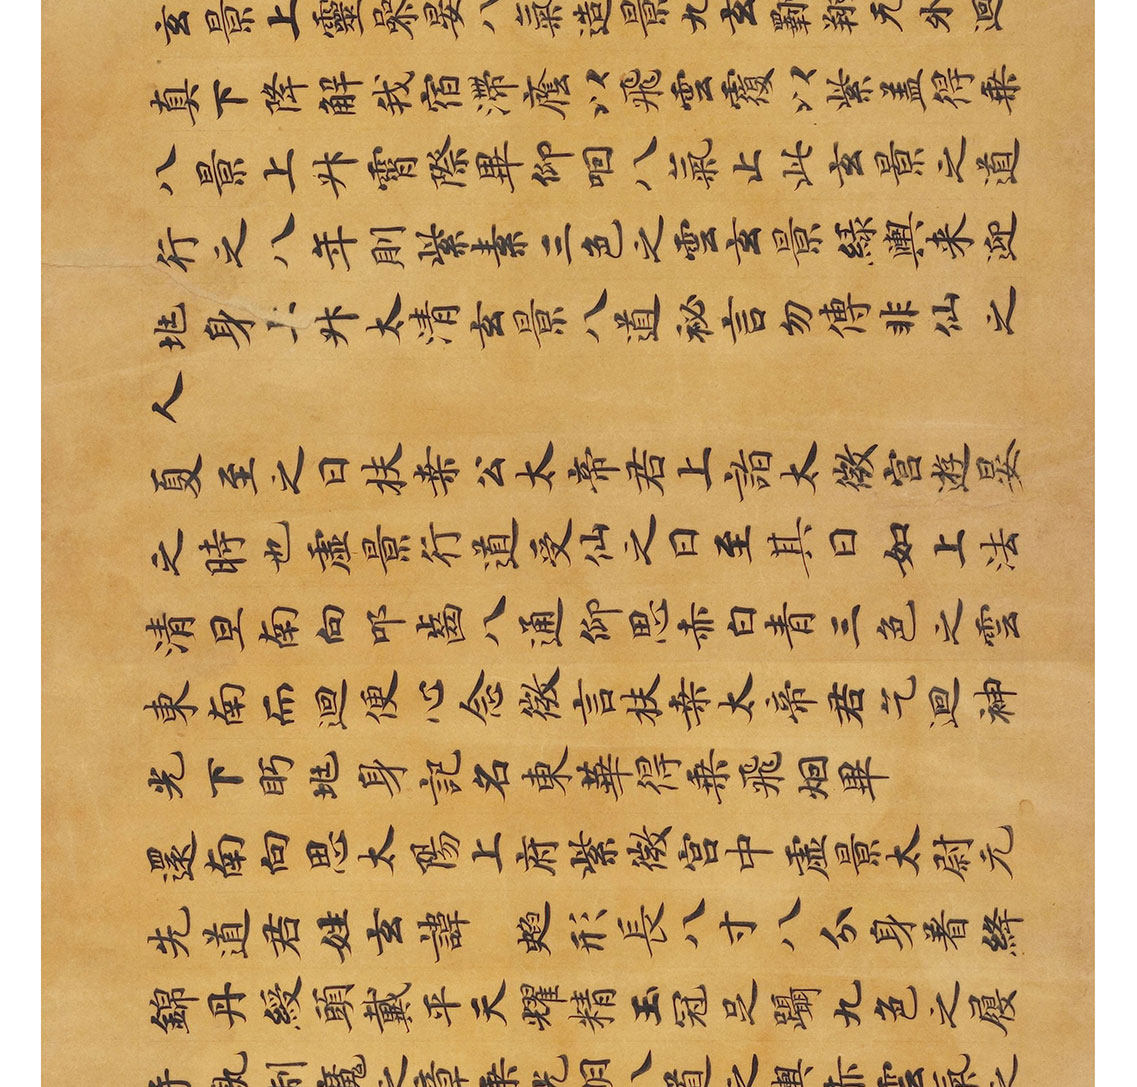 玄景上靈晨晏八氣造景九玄翱翔无外迴
真下降解我宿滯蔭以飛雲覆以紫蓋得乗
八景上升霄際畢仰咽八氣止此玄景之道
行之八年則紫素三色之雲玄景綠輿来迎
兆身上升太清玄景八道祕言勿傳非仙之
人
夏至之日扶桒公太帝君上詣太微宫遊晏
之時也虛景行道受仙之日至其日如上法
清旦南向叩齒八通仰思赤白青三色之雲
東南而迴便心念微言扶桒太帝君乞迴神
光下眄兆身記名東華得乗飛烟畢
還南向思太陽上府紫微宫中虛景太尉元
先道君姓玄諱 形長八寸八分身著絳
錦丹綬頭戴平天耀精玉冠足躡九色之履
手執制魔之章乗光明八道之輿赤雲氣之